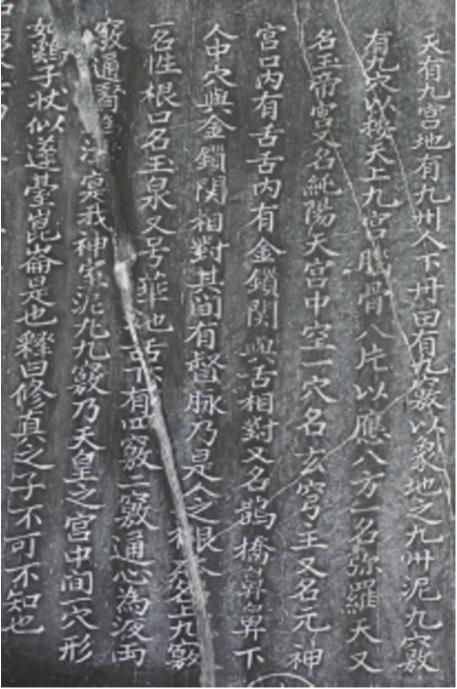 天有九宮地有九州人下丹田有九竅以象地之九州泥九竅
有九穴以按天上九宮腦骨八片以應八方一名弥羅天又
名玉帝宮又名純陽天宮中空一穴名玄穹主又名元神
宮口内有舌舌内有金鎖関與舌相對又名鵲橋鼻鼻下
人中穴與金鎖関相對其間有督脉乃是人之根本名上九竅
一名性根口名玉泉又号華池舌下有四竅二竅通心為液両
竅通腎津實我神室泥九九竅乃天皇之宮中間一穴形
如鷄子狀似蓬臺崑崙是也釋曰修真之子不可不知也